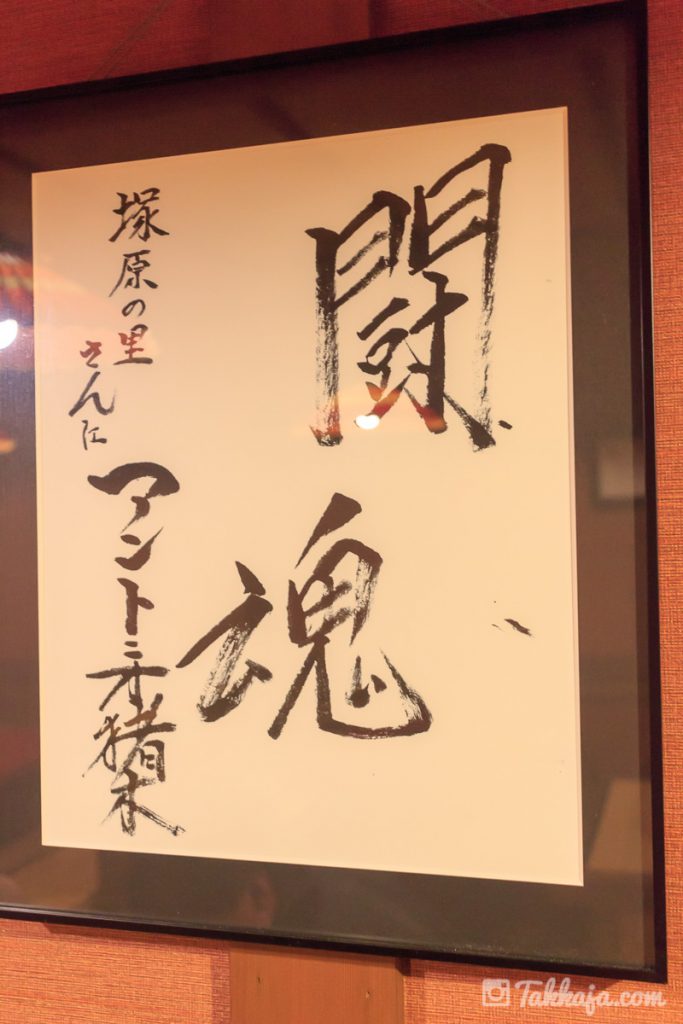 闘魂
塚原の里
さん江
アントニオ猪木
Takkaja.com